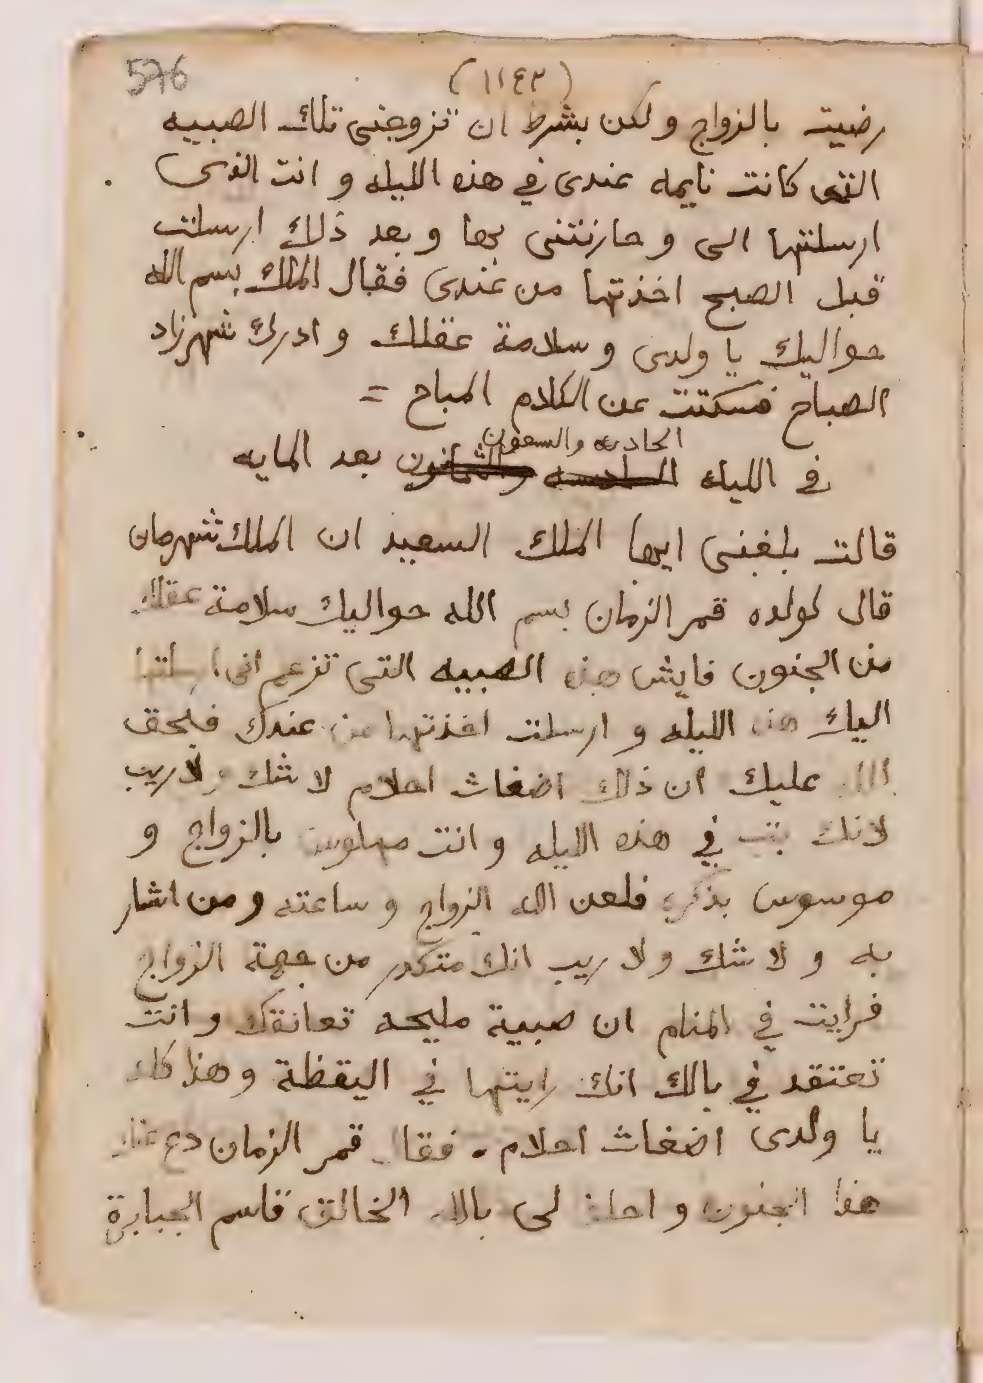 576
(١١٤٣)
رضيت بالزواج ولكن بشرط ان تزوجنى تلك الصبيه
التى كانت نايمه عندى في هذه الليله و انت الذى
ارسلتها الى و حارنتنى بها و بعد ذلك ارسلت
قبل الصبح اخذتها من عندى فقال الملك بسم الله
حواليك يا ولدى و سلامة عقلك و ادرك شهرزاد
الصباح فسكتت عن الكلام المباح =
الحاديه والسبعون
في الليله السادسه والثمانون بعد المايه
قالت بلغنى ايها الملك السعيد ان الملك شهرمان
قال لولده قمر الزمان بسم الله حواليك سلامة عقلك
من الجنون فايش هذه الصبيه التى تزعم انى ارسلتها
اليك هذه الليله و ارسلت اخذتها من عندك فبحق
الله عليك ان ذلك اضغاث احلام لا شك ولا ريب
لانك بت في هذه الليله و انت مهلوس بالزواج و
موسوس بذكره فلعن الله الزواج و ساعته و من اشار
به و لا شك ولا ريب انك متكدر من جهة الزواج
فرايت في المنام ان صبية مليحه تعانقك و انت
تعتقد في بالك انك رايتها في اليقظة و هذا كله
يا ولدى اضغاث احلام . فقال قمر الزمان دع عنك
هذا الجنون و احلف لى بالله الخالق قاسم الجبابرة